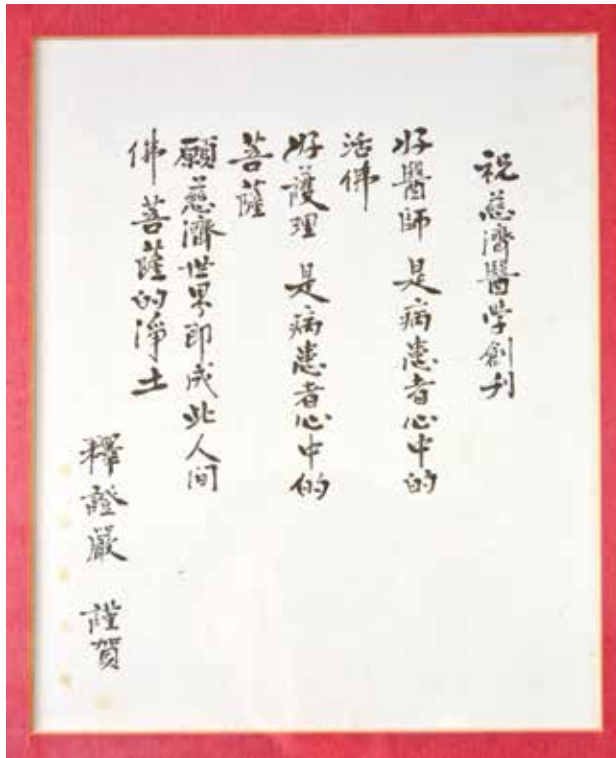 祝慈濟醫学創刊
好醫師 是病患者心中的
活佛
好護理 是病患者心中的
菩薩
願慈濟世界即成此人间
佛菩薩的淨土
釋證嚴 謹賀